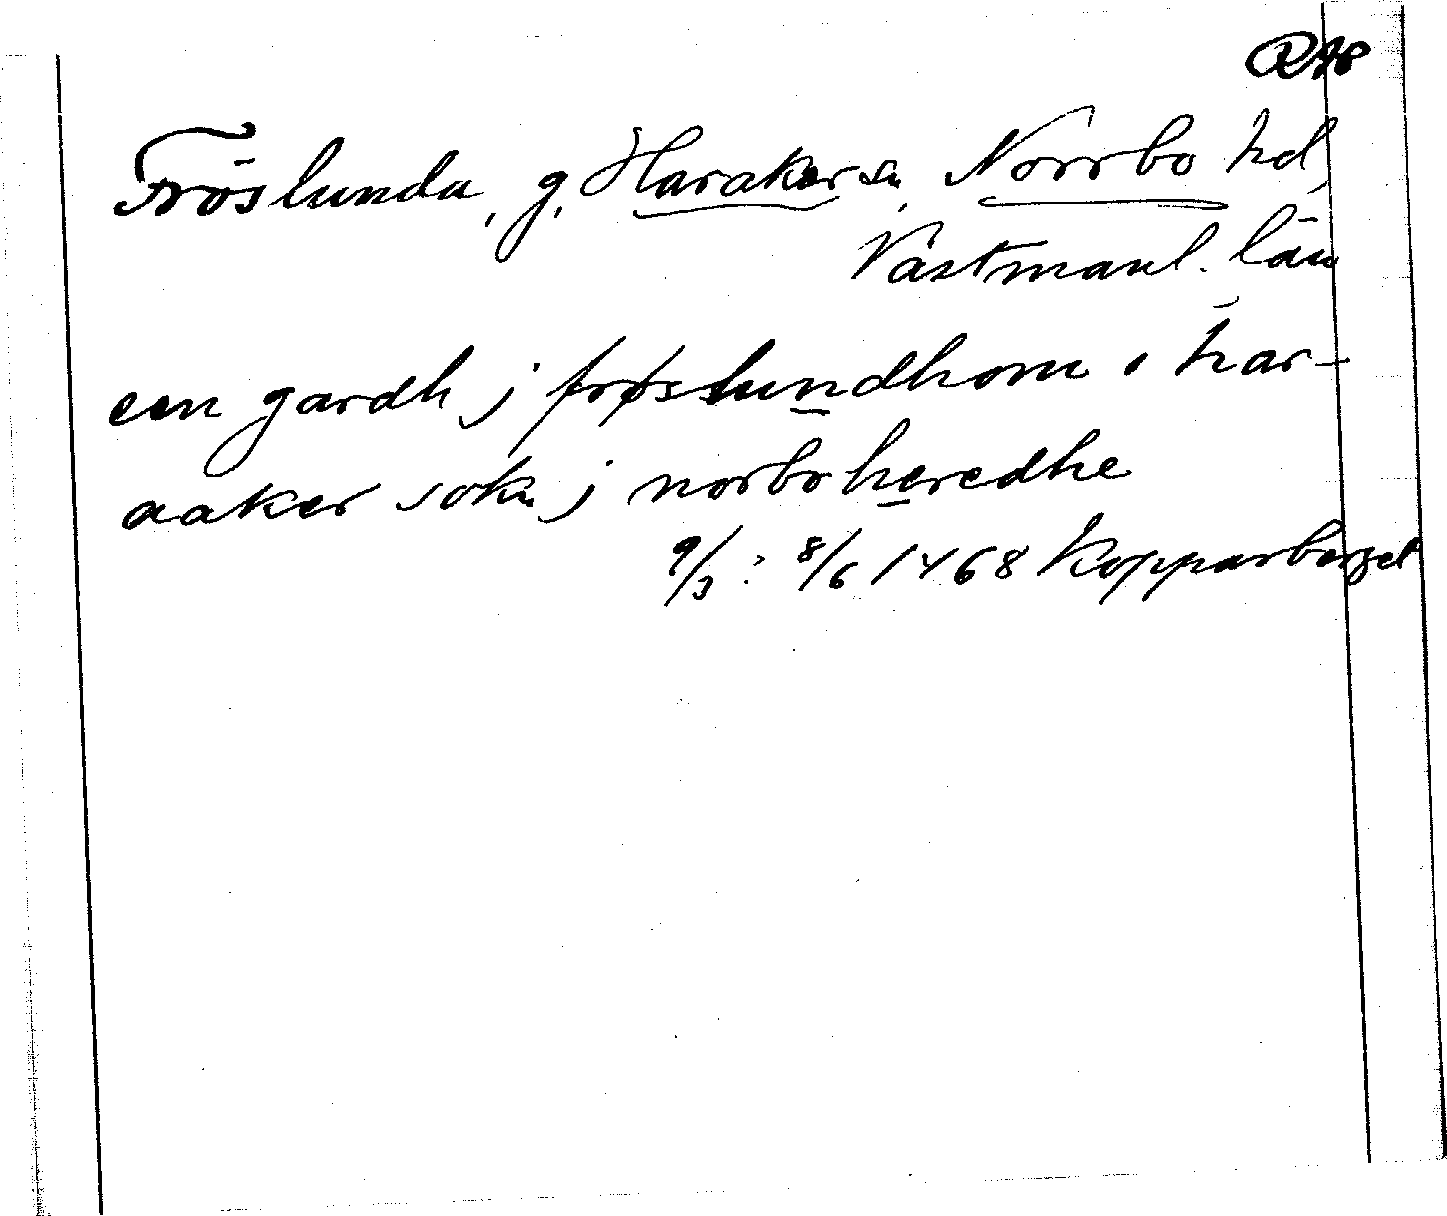 Fröslunda, g, Haraker sn, Norrbo hd,
Västmanl. län
een gardh j frøslundhom i har-
aaker sokn j norbo heredhe
9/3 : 8/6 1468 Kopparberget